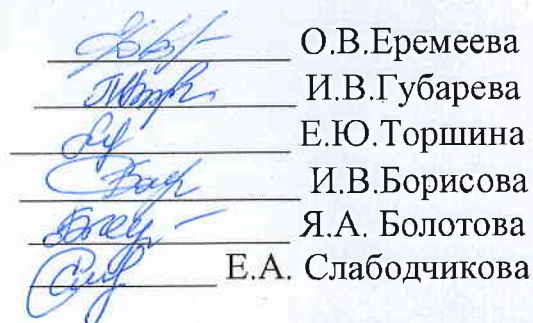 О.В.Еремеева
И.В.Губарева
Е.Ю.Торшина
И.В.Борисова
Я.А. Болотова
Е.А. Слабодчикова